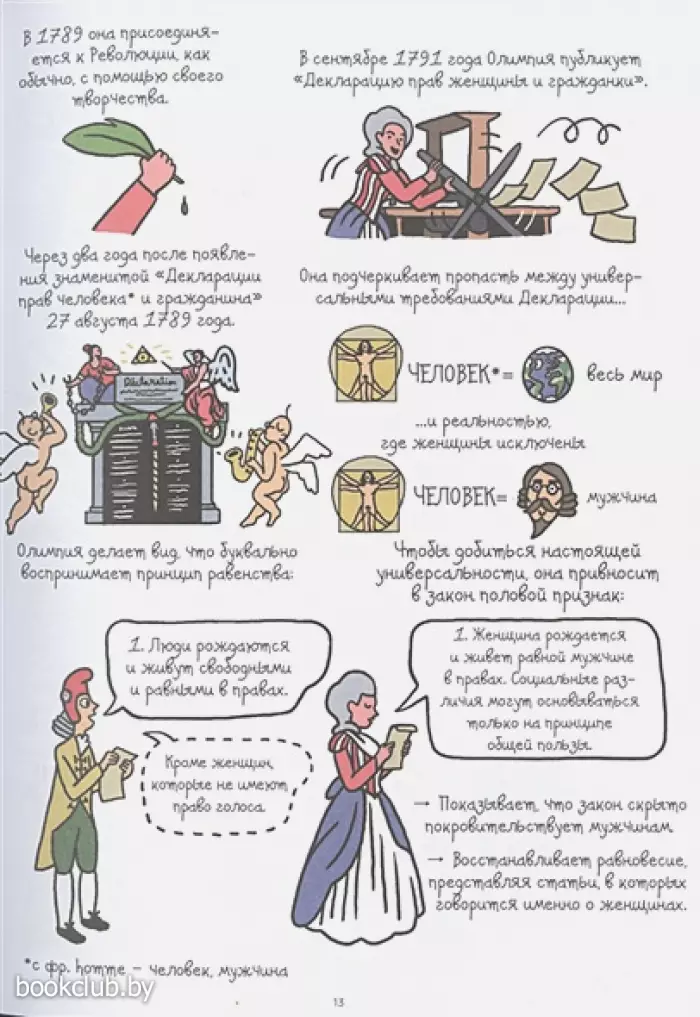 В 1789 она присоединя-
ется к Революции, как
обычно, с помощью своего
творчества.
В сентябре 1791 года Олимпия публикует
«Декларацию прав женщины и гражданки».
Через два года после появле-
ния знаменитой «Декларации
прав человека* и гражданина»
27 августа 1789 года.
Она подчеркивает пропасть между универ-
сальными требованиями Декларации...
Déclaration
ЧЕЛОВЕК*= весь мир
...и реальностью,
где женщины исключены
ЧЕЛОВЕК= мужчина
Олимпия делает вид, что буквально
воспринимает принцип равенства:
Чтобы добиться настоящей
универсальности, она привносит
в закон половой признак:
1. Люди рождаются
и живут свободными
и равными в правах.
Кроме женщин,
которые не имеют
право голоса.
1. Женщина рождается
и живет равной мужчине
в правах. Социальные раз-
личия могут основываться
только на принципе
общей пользы.
→ Показывает, что закон скрыто
покровительствует мужчинам.
→ Восстанавливает равновесие,
представляя статьи, в которых
говорится именно о женщинах.
*с фр. homme – человек, мужчина
bookclub.by
13